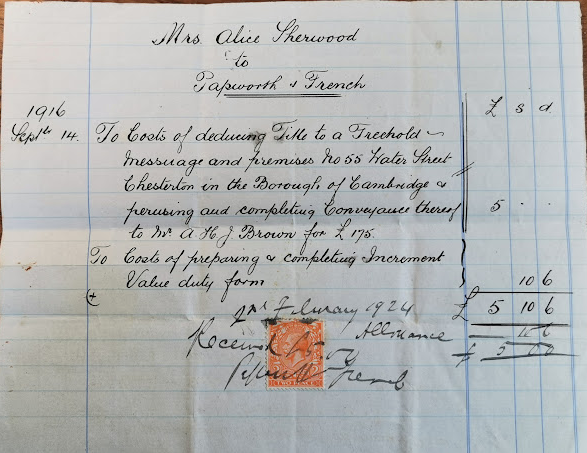 Mrs. Alice Sherwood
to
Papworth & French
1916 £ s d.
Septr 14. To Costs of deducing Title to a Freehold
Messuage and premises No 55 Water Street
Chesterton in the Borough of Cambridge &
perusing and completing Conveyance thereof 5 . .
to Mr. A H. J. Brown for £175.
To Costs of preparing & completing Increment
Value duty form 10 6
£ 5 10 6
February 1924
Allowance 10 6
Received £ 5
French
TWO PENCE